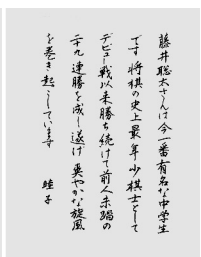 藤井聡太さんは今一番有名な中学生
です 将棋の史上最年少棋士として
デビュー戦以来勝ち続けて前人未踏の
二十九連勝を成し遂げ 爽やかな旋風
を巻き起こしています
睦子